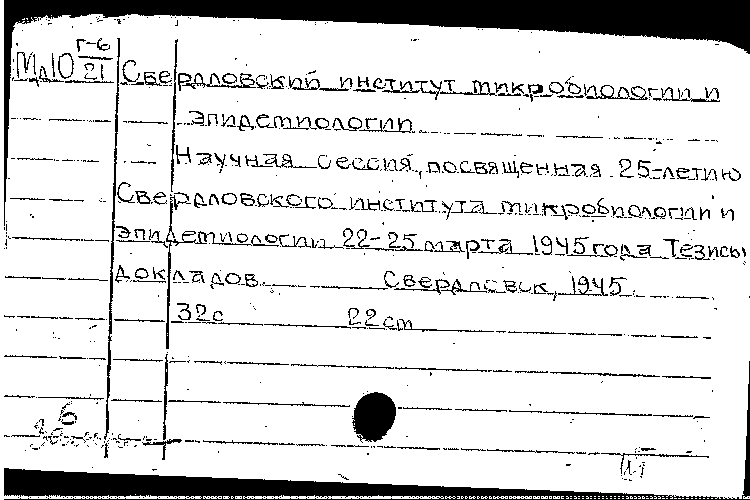 МД10 Г-6/21 Свердловский институт микробиологии и
эпидемиологии
Научная сессия, посвященная 25-летию
Свердловского института микробиологии и
эпидемиологии 22-25 марта 1945 года Тезисы
докладов. Свердловск, 1945.
32с 22 cm
б